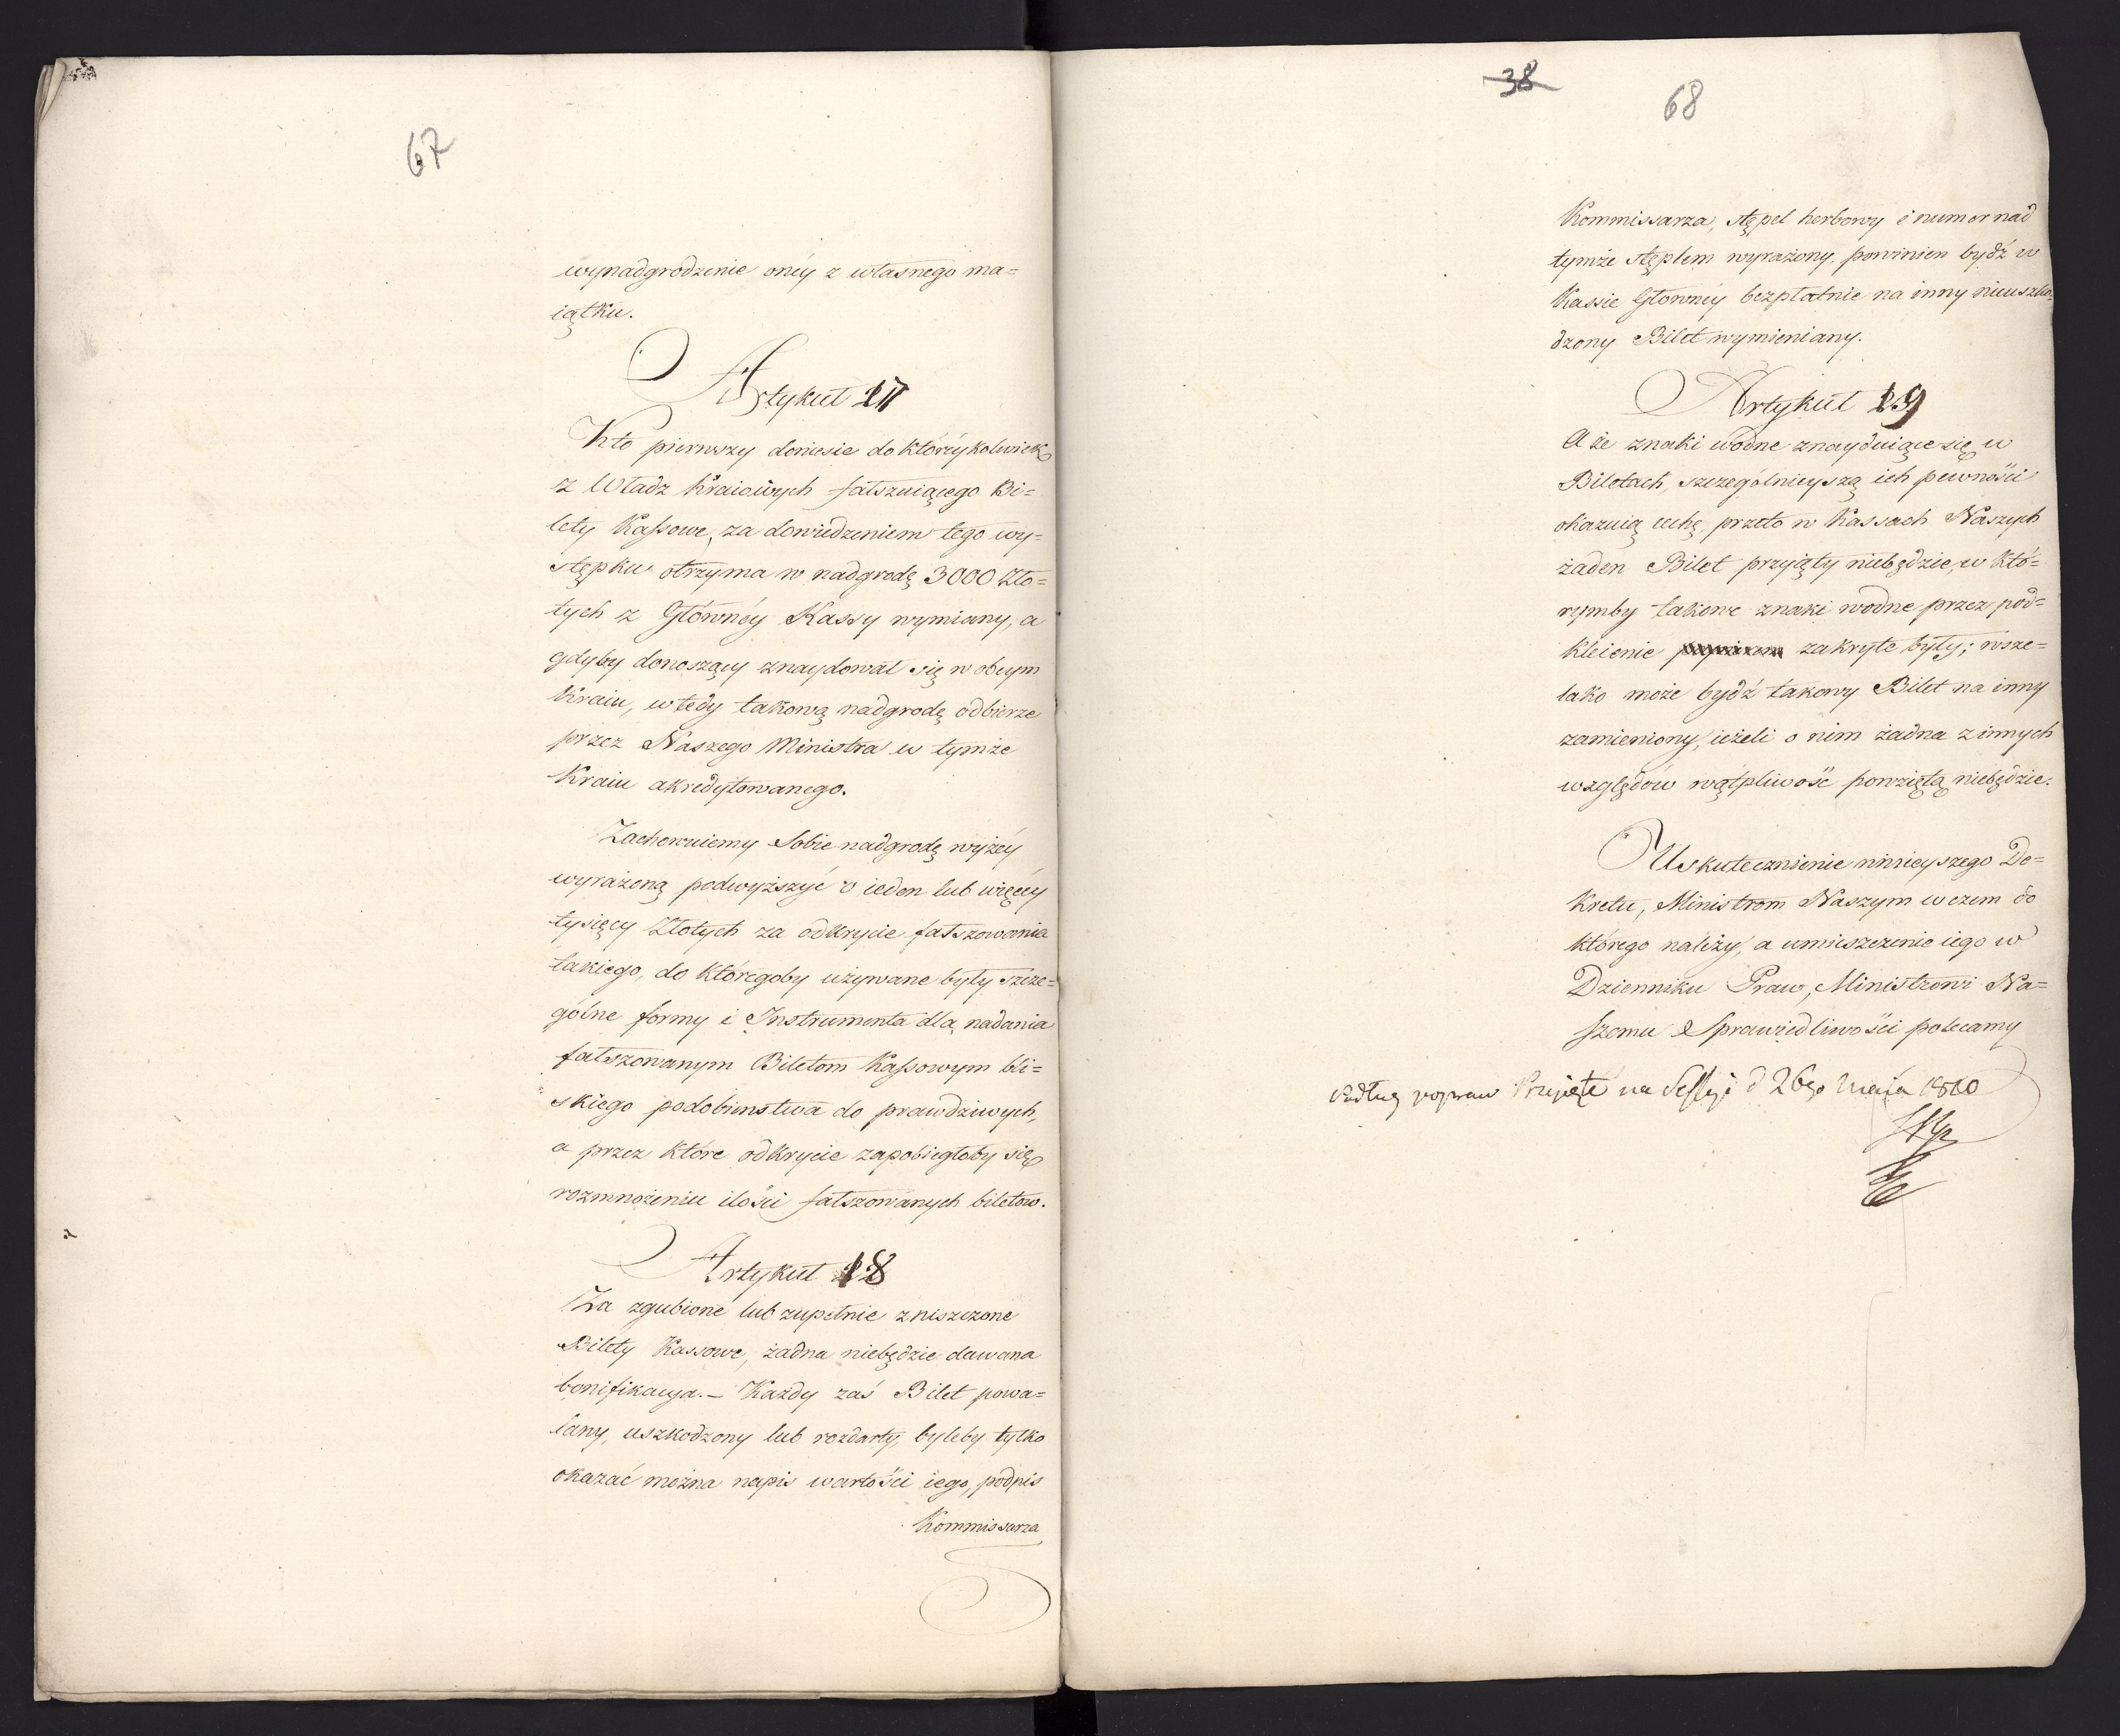 67
wynadgrodzenie onéy z własnego ma=
iątku.
Artykuł 17
Kto pierwszy doniesie do któréykolwiek
z Władz Kraiowych fałszuiącego Bi=
lety Kassowe, za dowiedzeniem tego wy=
stępku otrzyma w nadgrodę 3000 Zło=
tych z Głównéy Kassy wymiany, a
gdyby donoszący znaydował się w obcym
Kraiu, wtedy takową nadgrodę odbierze
przez Naszego Ministra w tymże
Kraiu akredytowanego.
Zachowuiemy Sobie nadgrodę wyżéy
wyrażoną podwyższyć o ieden lub więcéy
tysięcy Złotych za odkrycie fałszowania
takiego, do któregoby używane były szcze=
gólne formy i Instrumenta dla nadania
fałszowanym Biletom Kassowym bli=
skiego podobieństwa do prawdziwych,
a przez które odkrycie zapobiegłoby się
rozmnożeniu ilości fałszowanych biletów.
Artykuł 18
Za zgubione lub zupełnie zniszczone
Bilety Kassowe, żadna niebędzie dawana
bonifikacya.— Każdy zaś Bilet powa=
lany, uszkodzony lub rozdarty, byleby tylko
okazać można napis wartości iego, podpis
Kommissarza
38
68
Kommissarza, stępel herbowy i numer nad
tymże stęplem wyrażony, powinien bydź w
Kassie Głównéy bezpłatnie na inny nieuszko=
dzony Bilet wymieniany.
Artykuł 19
A że znaki wodne znayduiące się w
Biletach, szczególnieyszą ich pewności
okazuią cechę, przeto w Kassach Naszych
żaden Bilet przyięty niebędzie, w któ=
rymby takowe znaki wodne przez pod=
kleienie papierem zakryte były; wsze=
lako może bydź takowy Bilet na inny
zamieniony, ieżeli o nim żadna z innych
względów wątpliwość powziętą niebędzie.
Uskutecznienie ninieyszego De=
kretu, Ministrom Naszym w czem do
którego należy, a umieszczenie iego w
Dzienniku Praw, Ministrowi Na=
szemu Sprawiedliwości polecamy
Według popraw Przyięte na Sessyi d 26go Maja 1810